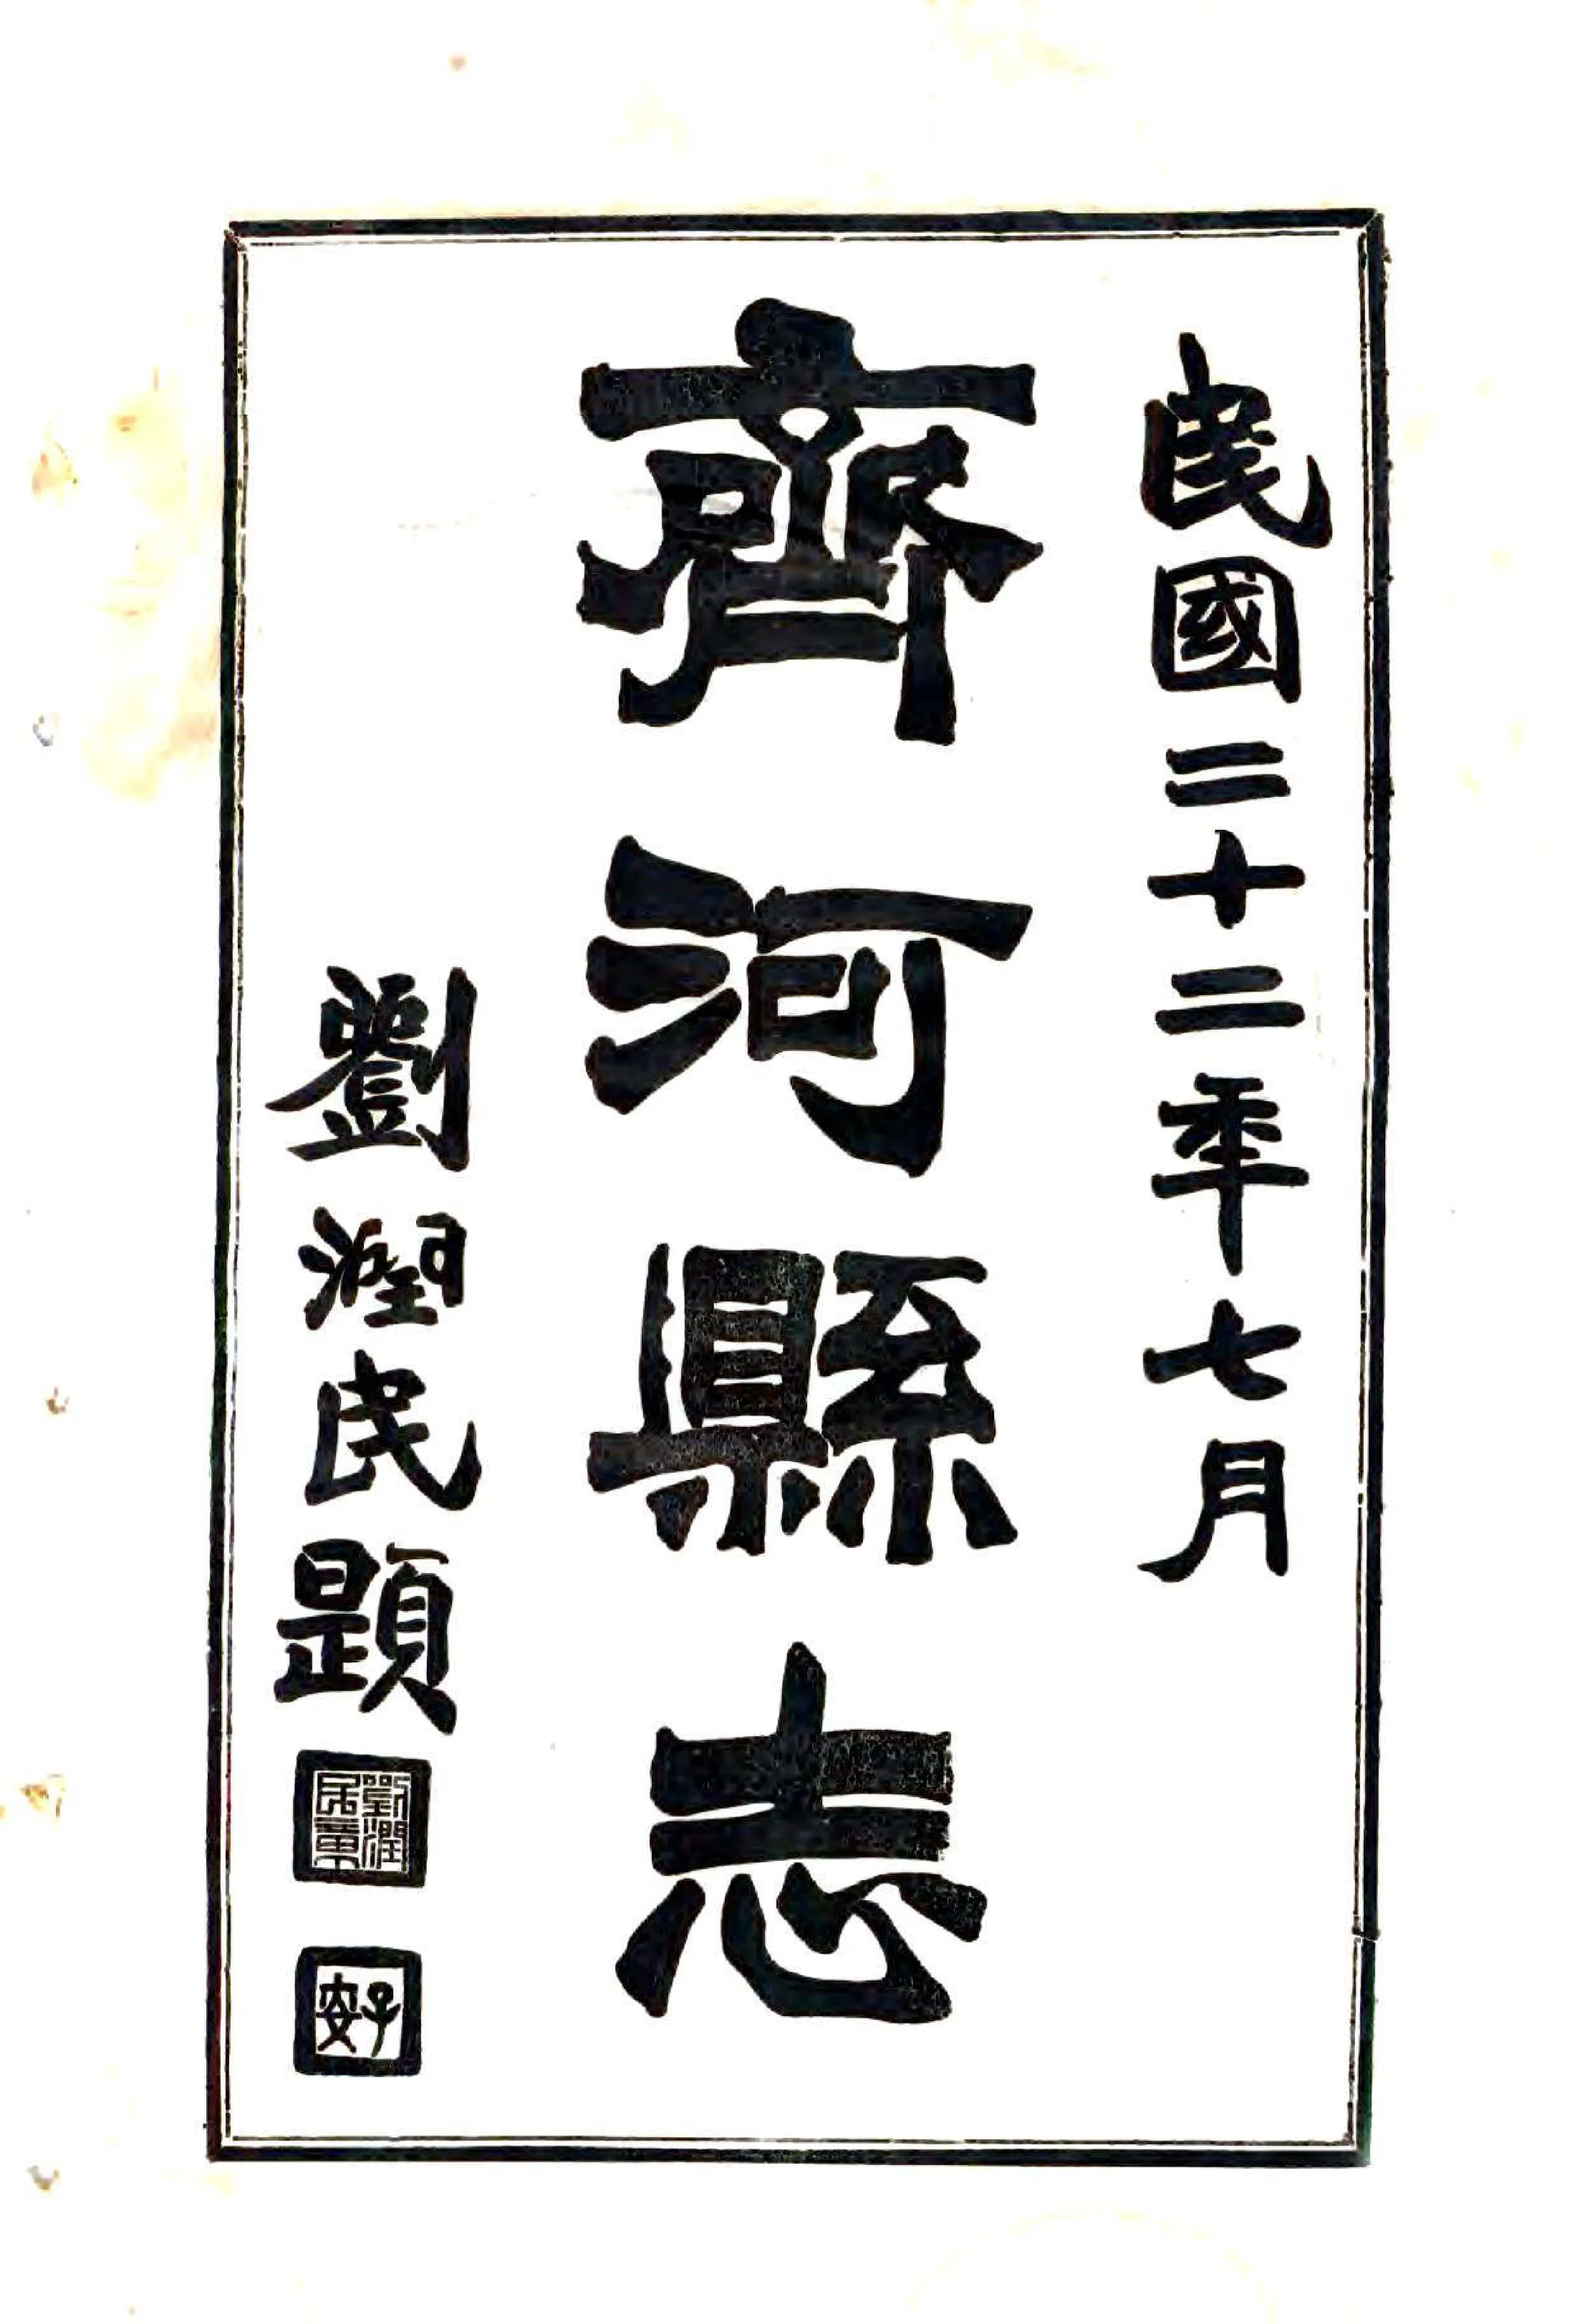 民國二十二年七月
齊河縣志
劉潤民題
劉潤民章